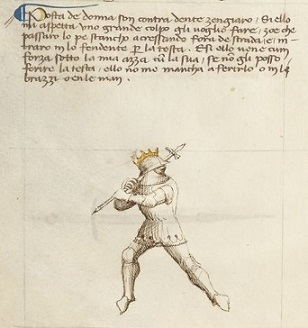 Posta de donna son contra dente zengiaro. Si ello
mi aspetta uno grande colpo gli voglio fare, zoe che
passaro lo pe stancho acressando fora de strada, e in-
traro in lo fendente p la testa. E si ello vene cum
forza sotto la mia azza cū la sua, se nō gli posso
ferire la testa, ello nō me mancha a ferirlo o in li
brazzi o en le man.